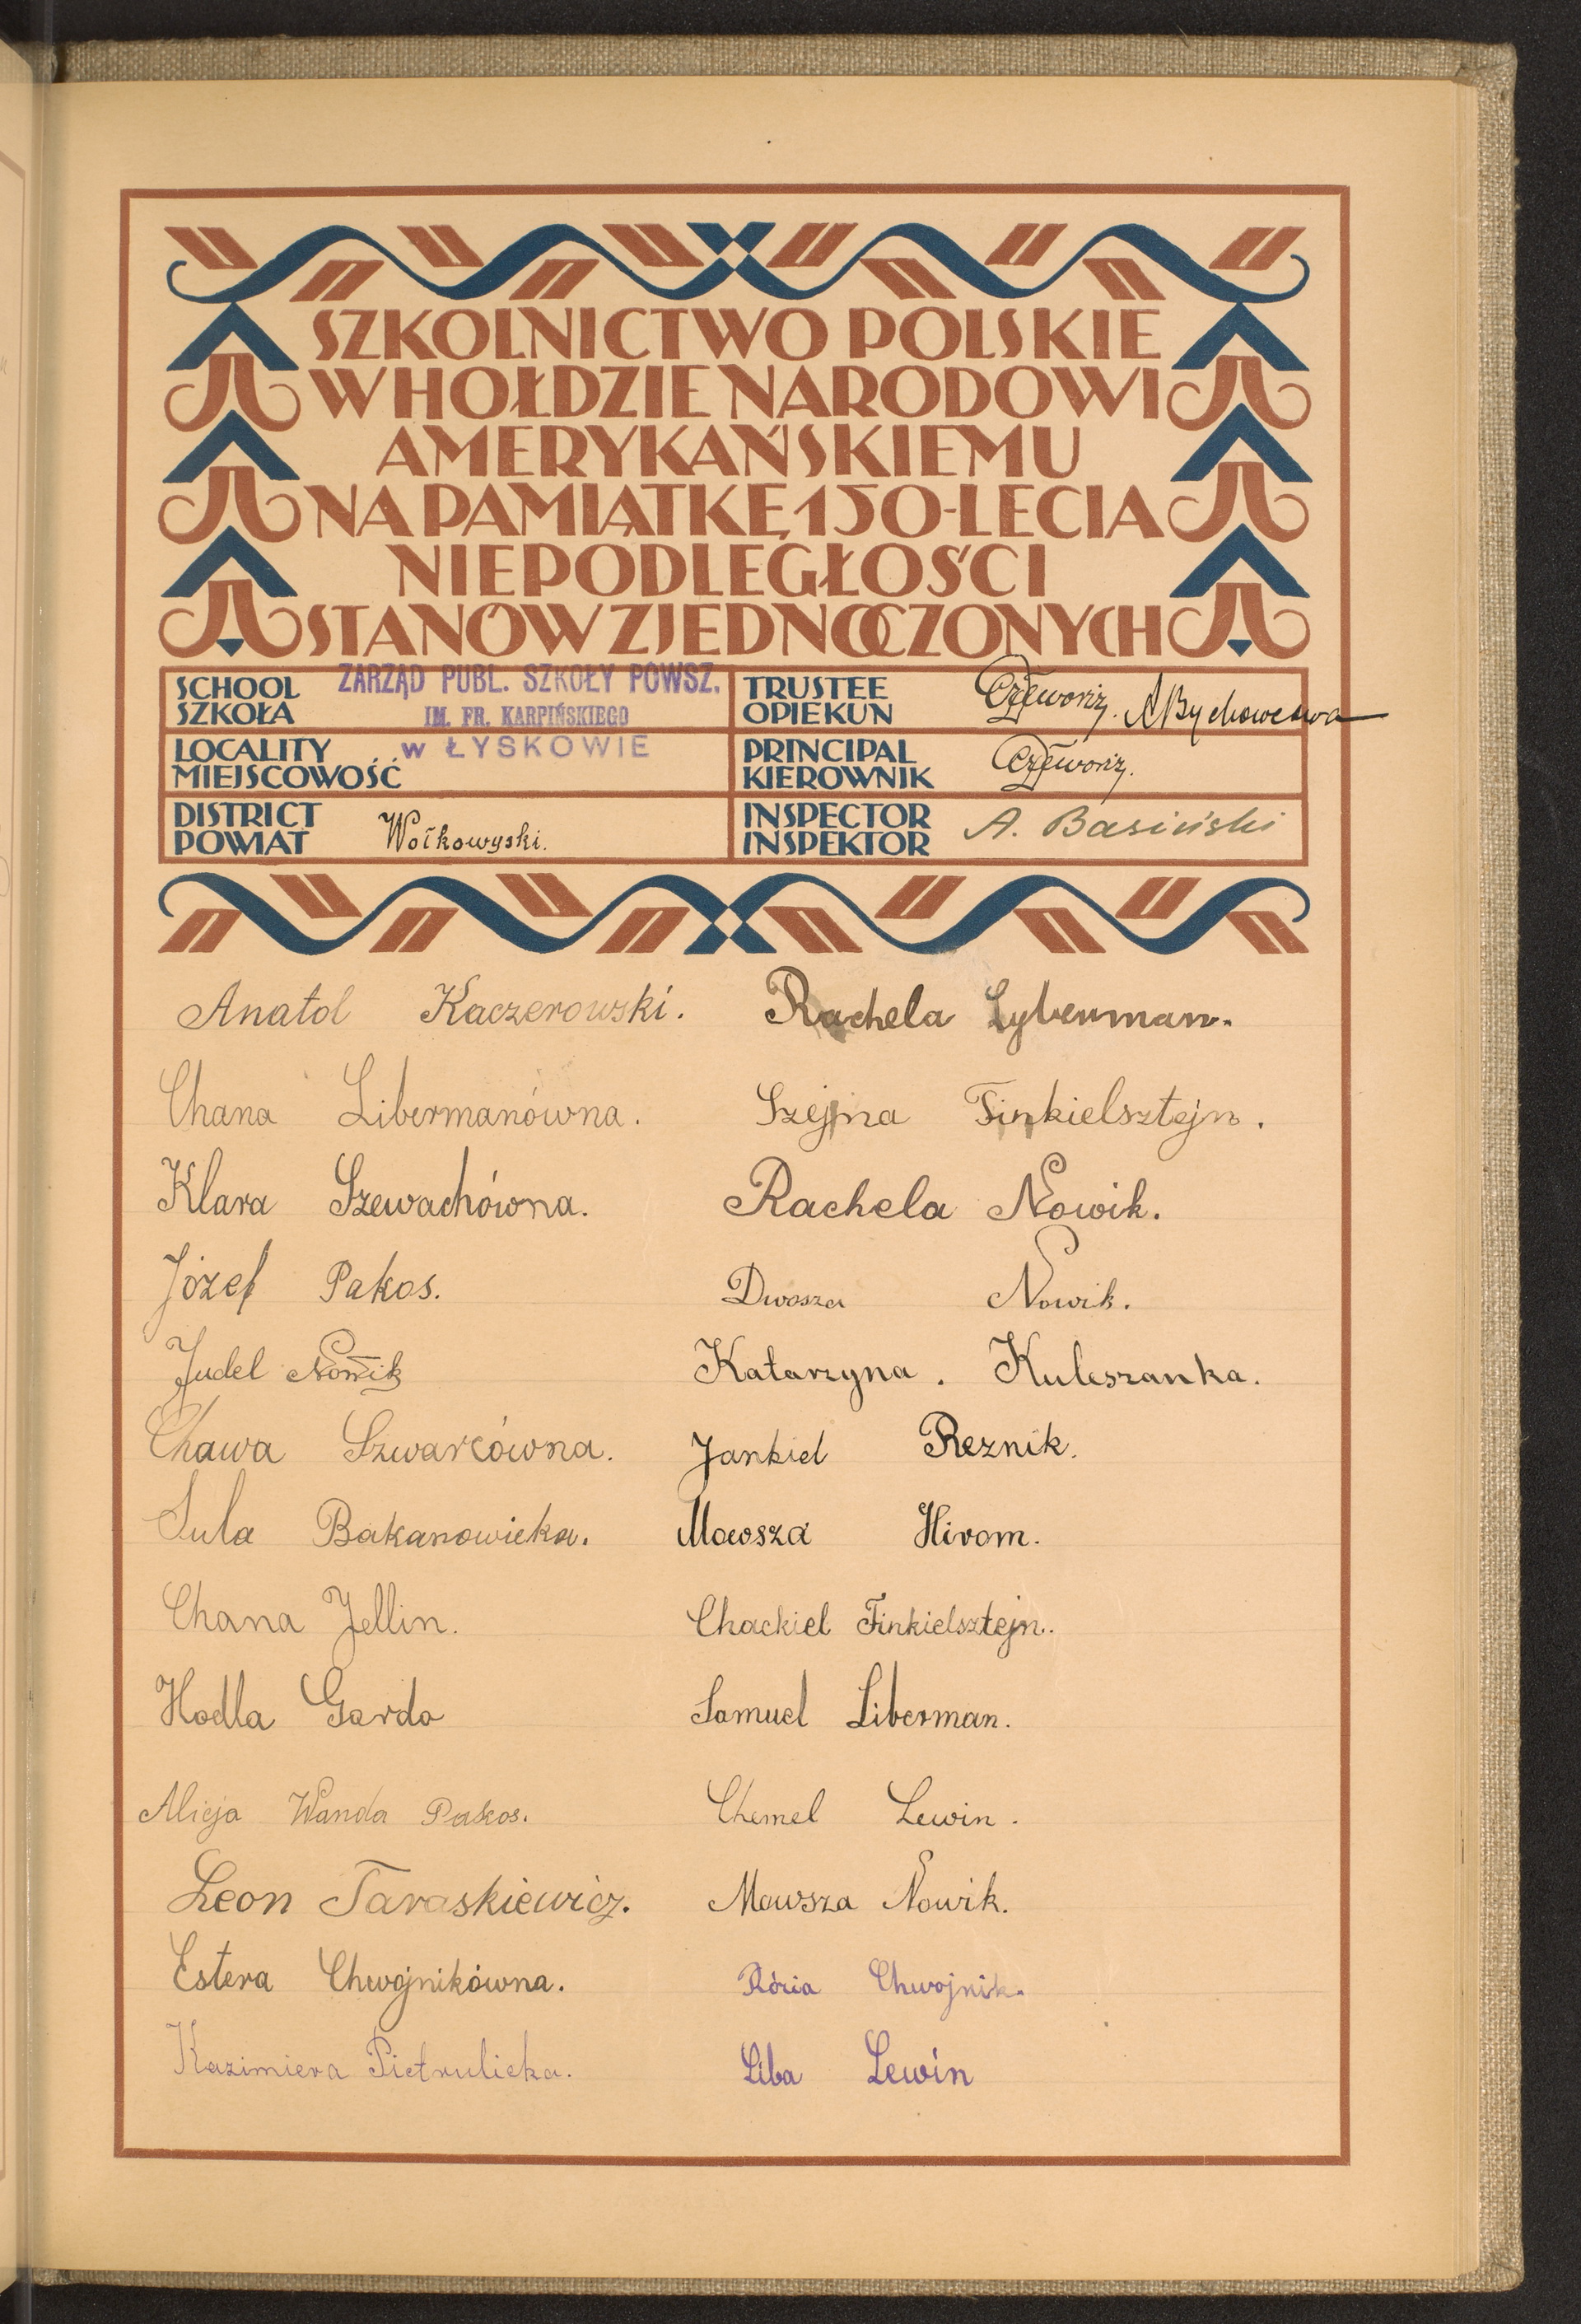 SZKOLNICTWO POLSKIE
W HOŁDZIE NARODOWI
AMERYKAŃSKIEMU
NA PAMIĄTKĘ 150-LECIA
NIEPODLEGŁOŚCI
STANÓW ZJEDNOCZONYCH
SCHOOL
SZKOŁA
ZARZĄD PUBL. SZKOŁY POWSZ.
IM. FR. KARPIŃSKIEGO
TRUSTEE
OPIEKUN
A Bychowcowa
LOCALITY
MIEJSCOWOŚĆ
w ŁYSKOWIE
PRINCIPAL
KIEROWNIK
DISTRICT
POWIAT
Wołkowyski.
INSPECTOR
INSPEKTOR
A. Basiński
Anatol Kaczerowski. Rachela Lyberman.
Chana Libermanówna. Szejna Finkielsztejn.
Klara Szewachówna. Rachela Nowik.
Józef Pakos. Dwosza Nowik.
Judel Nowik Katarzyna. Kuleszanka.
Chawa Szwarcówna. Jankiel Reznik.
Sula Bakanowicka. Mowsza Hirom.
Chana Jellin. Chackiel Finkielsztejn.
Hodla Gordo Samuel Liberman.
Alicja Wanda Pakos. Chemel Lewin.
Leon Taraskiewicz. Mowsza Nowik.
Estera Chwojnikówna. Rózia Chwojnik.
Kazimiera Pietrulicka. Liba Lewin